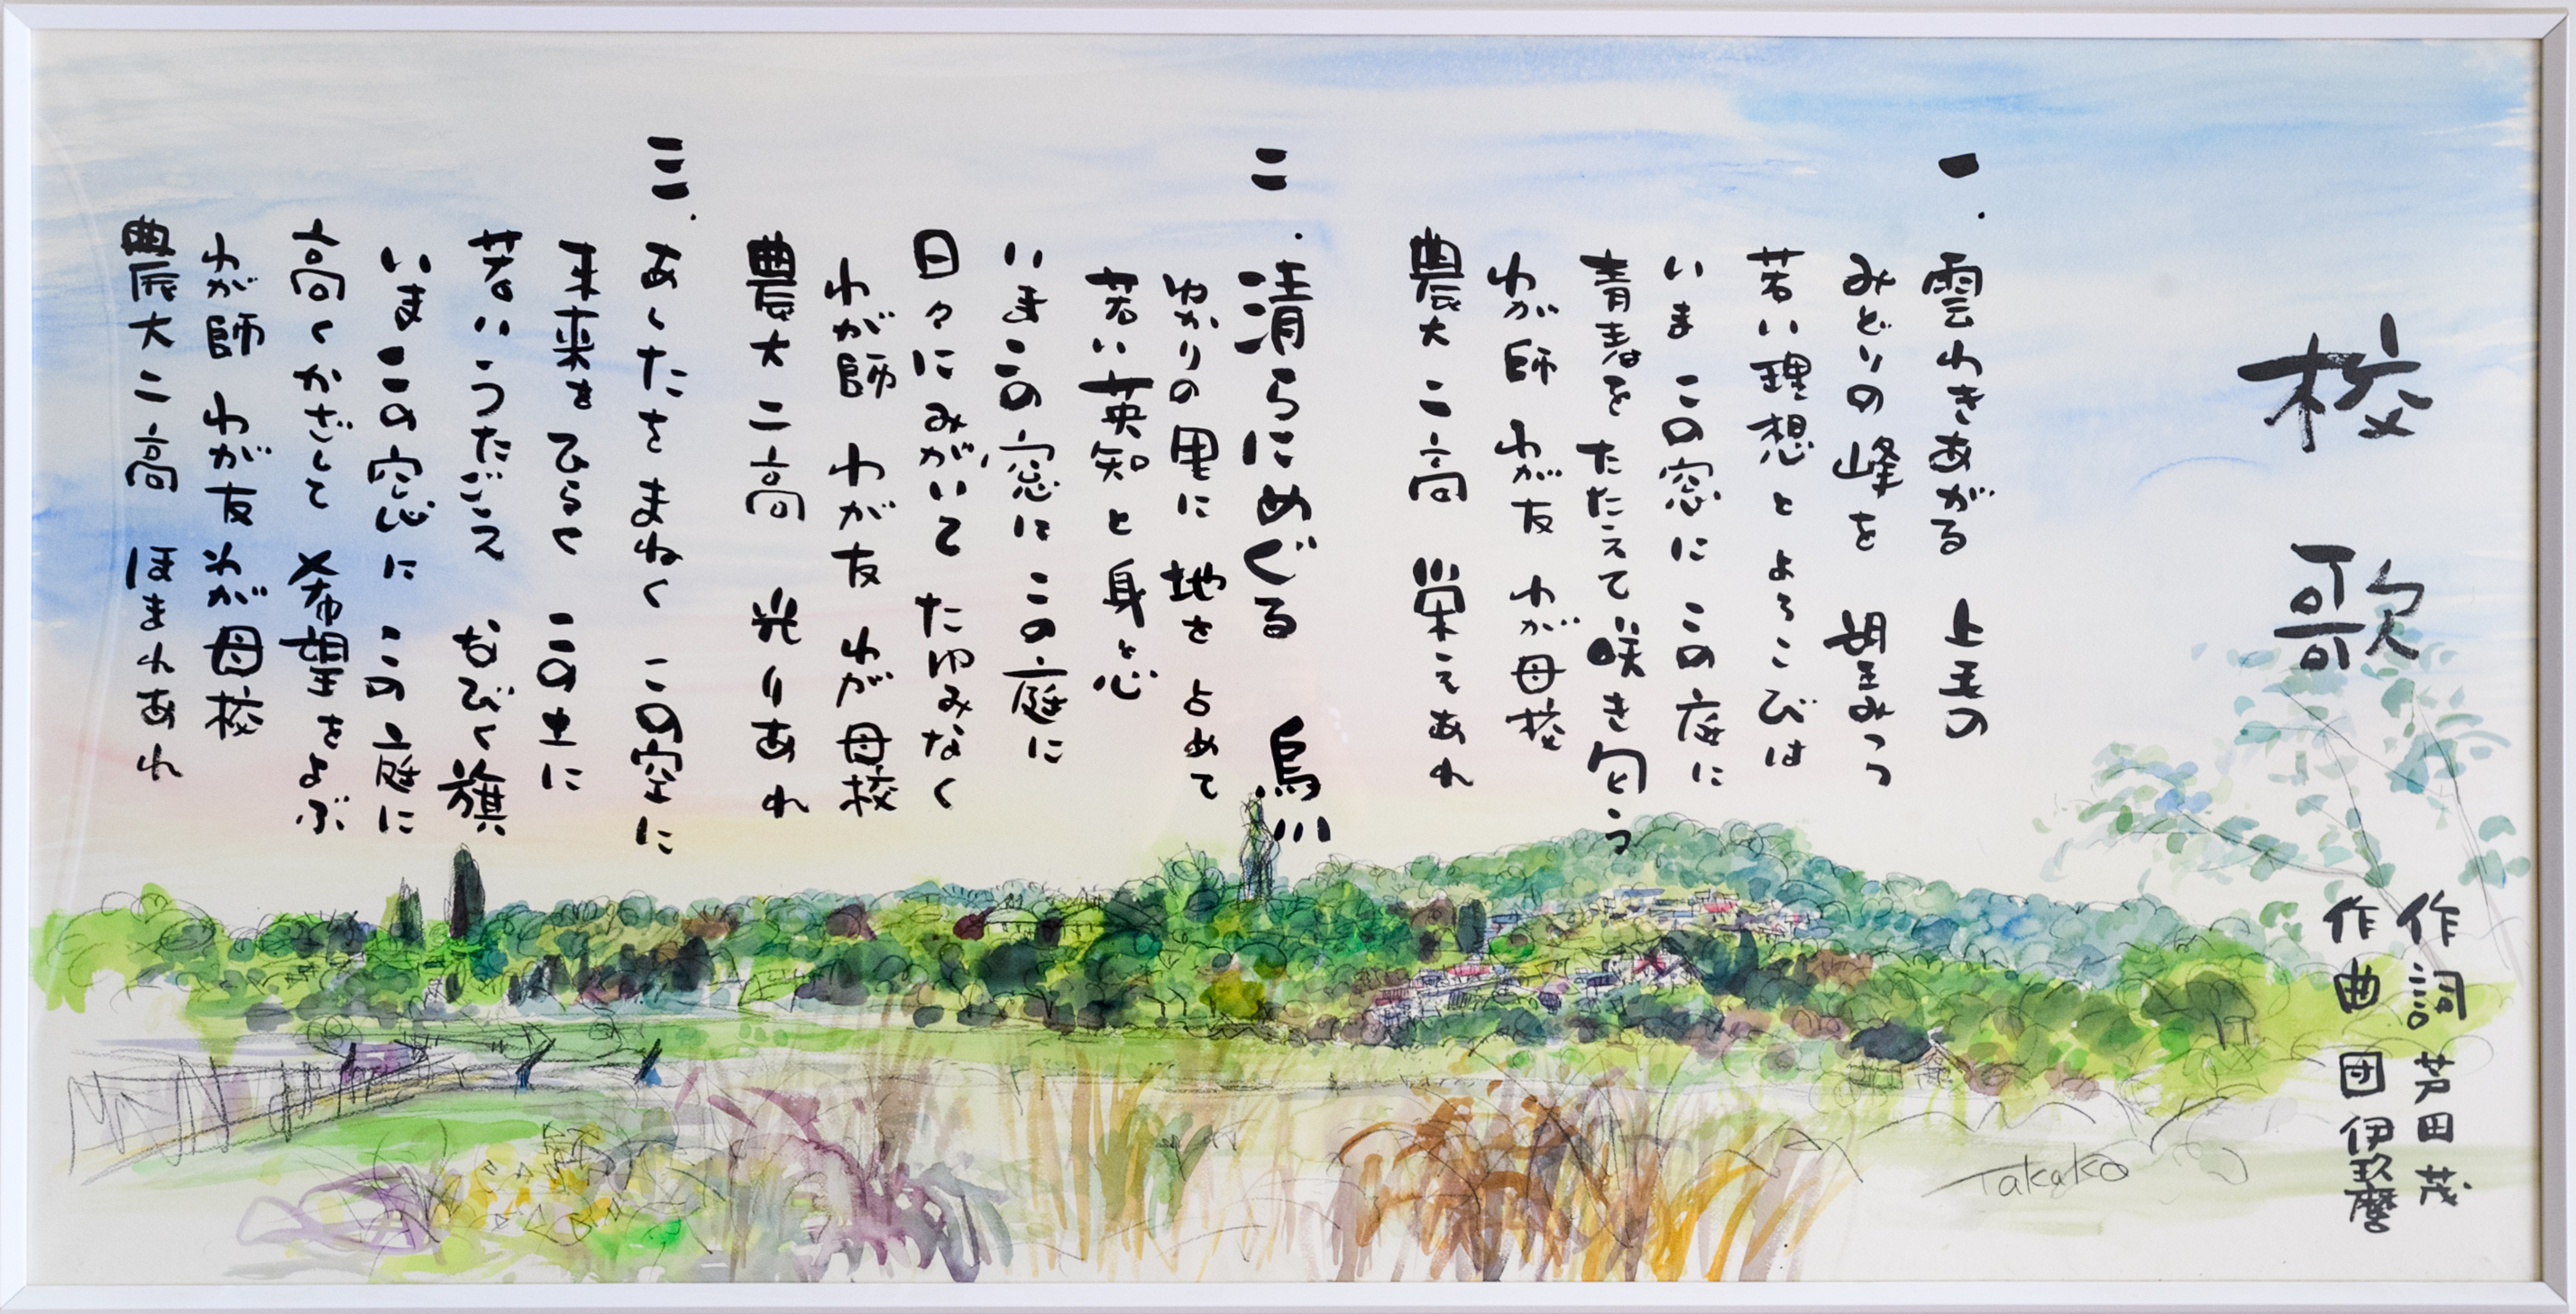 校歌
作詞 芦田茂
作曲 団伊玖磨
一.雲わきあがる 上毛の
みどりの峰を 望みつつ
若い理想と よろこびは
いま この窓に この庭に
青春を たたえて 咲き匂う
わが師 わが友 わが母校
農大二高 栄えあれ
二.清らにめぐる 烏川
ゆかりの里に 地を占めて
若い英知と 身と心
いま この窓に この庭に
日々にみがいて たゆみなく
わが師 わが友 わが母校
農大二高 光りあれ
三.あしたをまねく この空に
未来をひらく この土に
若いうたごえ なびく旗
いま この窓に この庭に
高くかざして 希望をよぶ
わが師 わが友 わが母校
農大二高 ほまれあれ
Takako